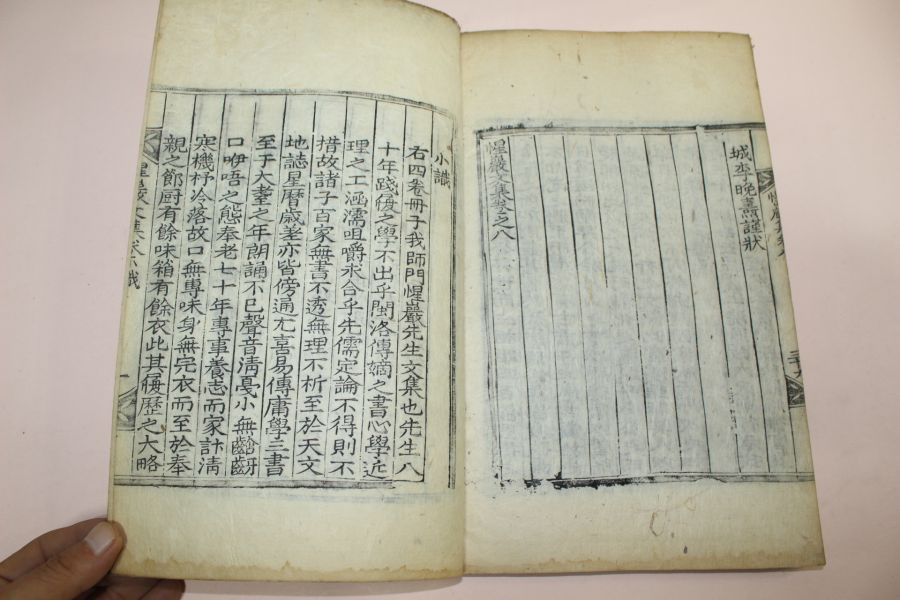 城李晚燾謹狀
惺巖文集卷之八
小識
右四卷冊子我師門惺巖先生文集也先生八
十年踐履之學不出乎閩洛傳嫡之書心學近
理之工涵濡咀嚼求合乎先儒定論不得則不
措故諸子百家無書不透無理不析至於天文
地誌星曆歲差亦皆傍通尤喜易傳庸學三書
至于大耋之年朗誦不已聲音淸戛小無齟齬
口咿唔之態奉老七十年專事養志而家計淸
寒機杼冷落故口無專味身無完衣而至於奉
親之節厨有餘味箱有餘衣此其履歷之大略